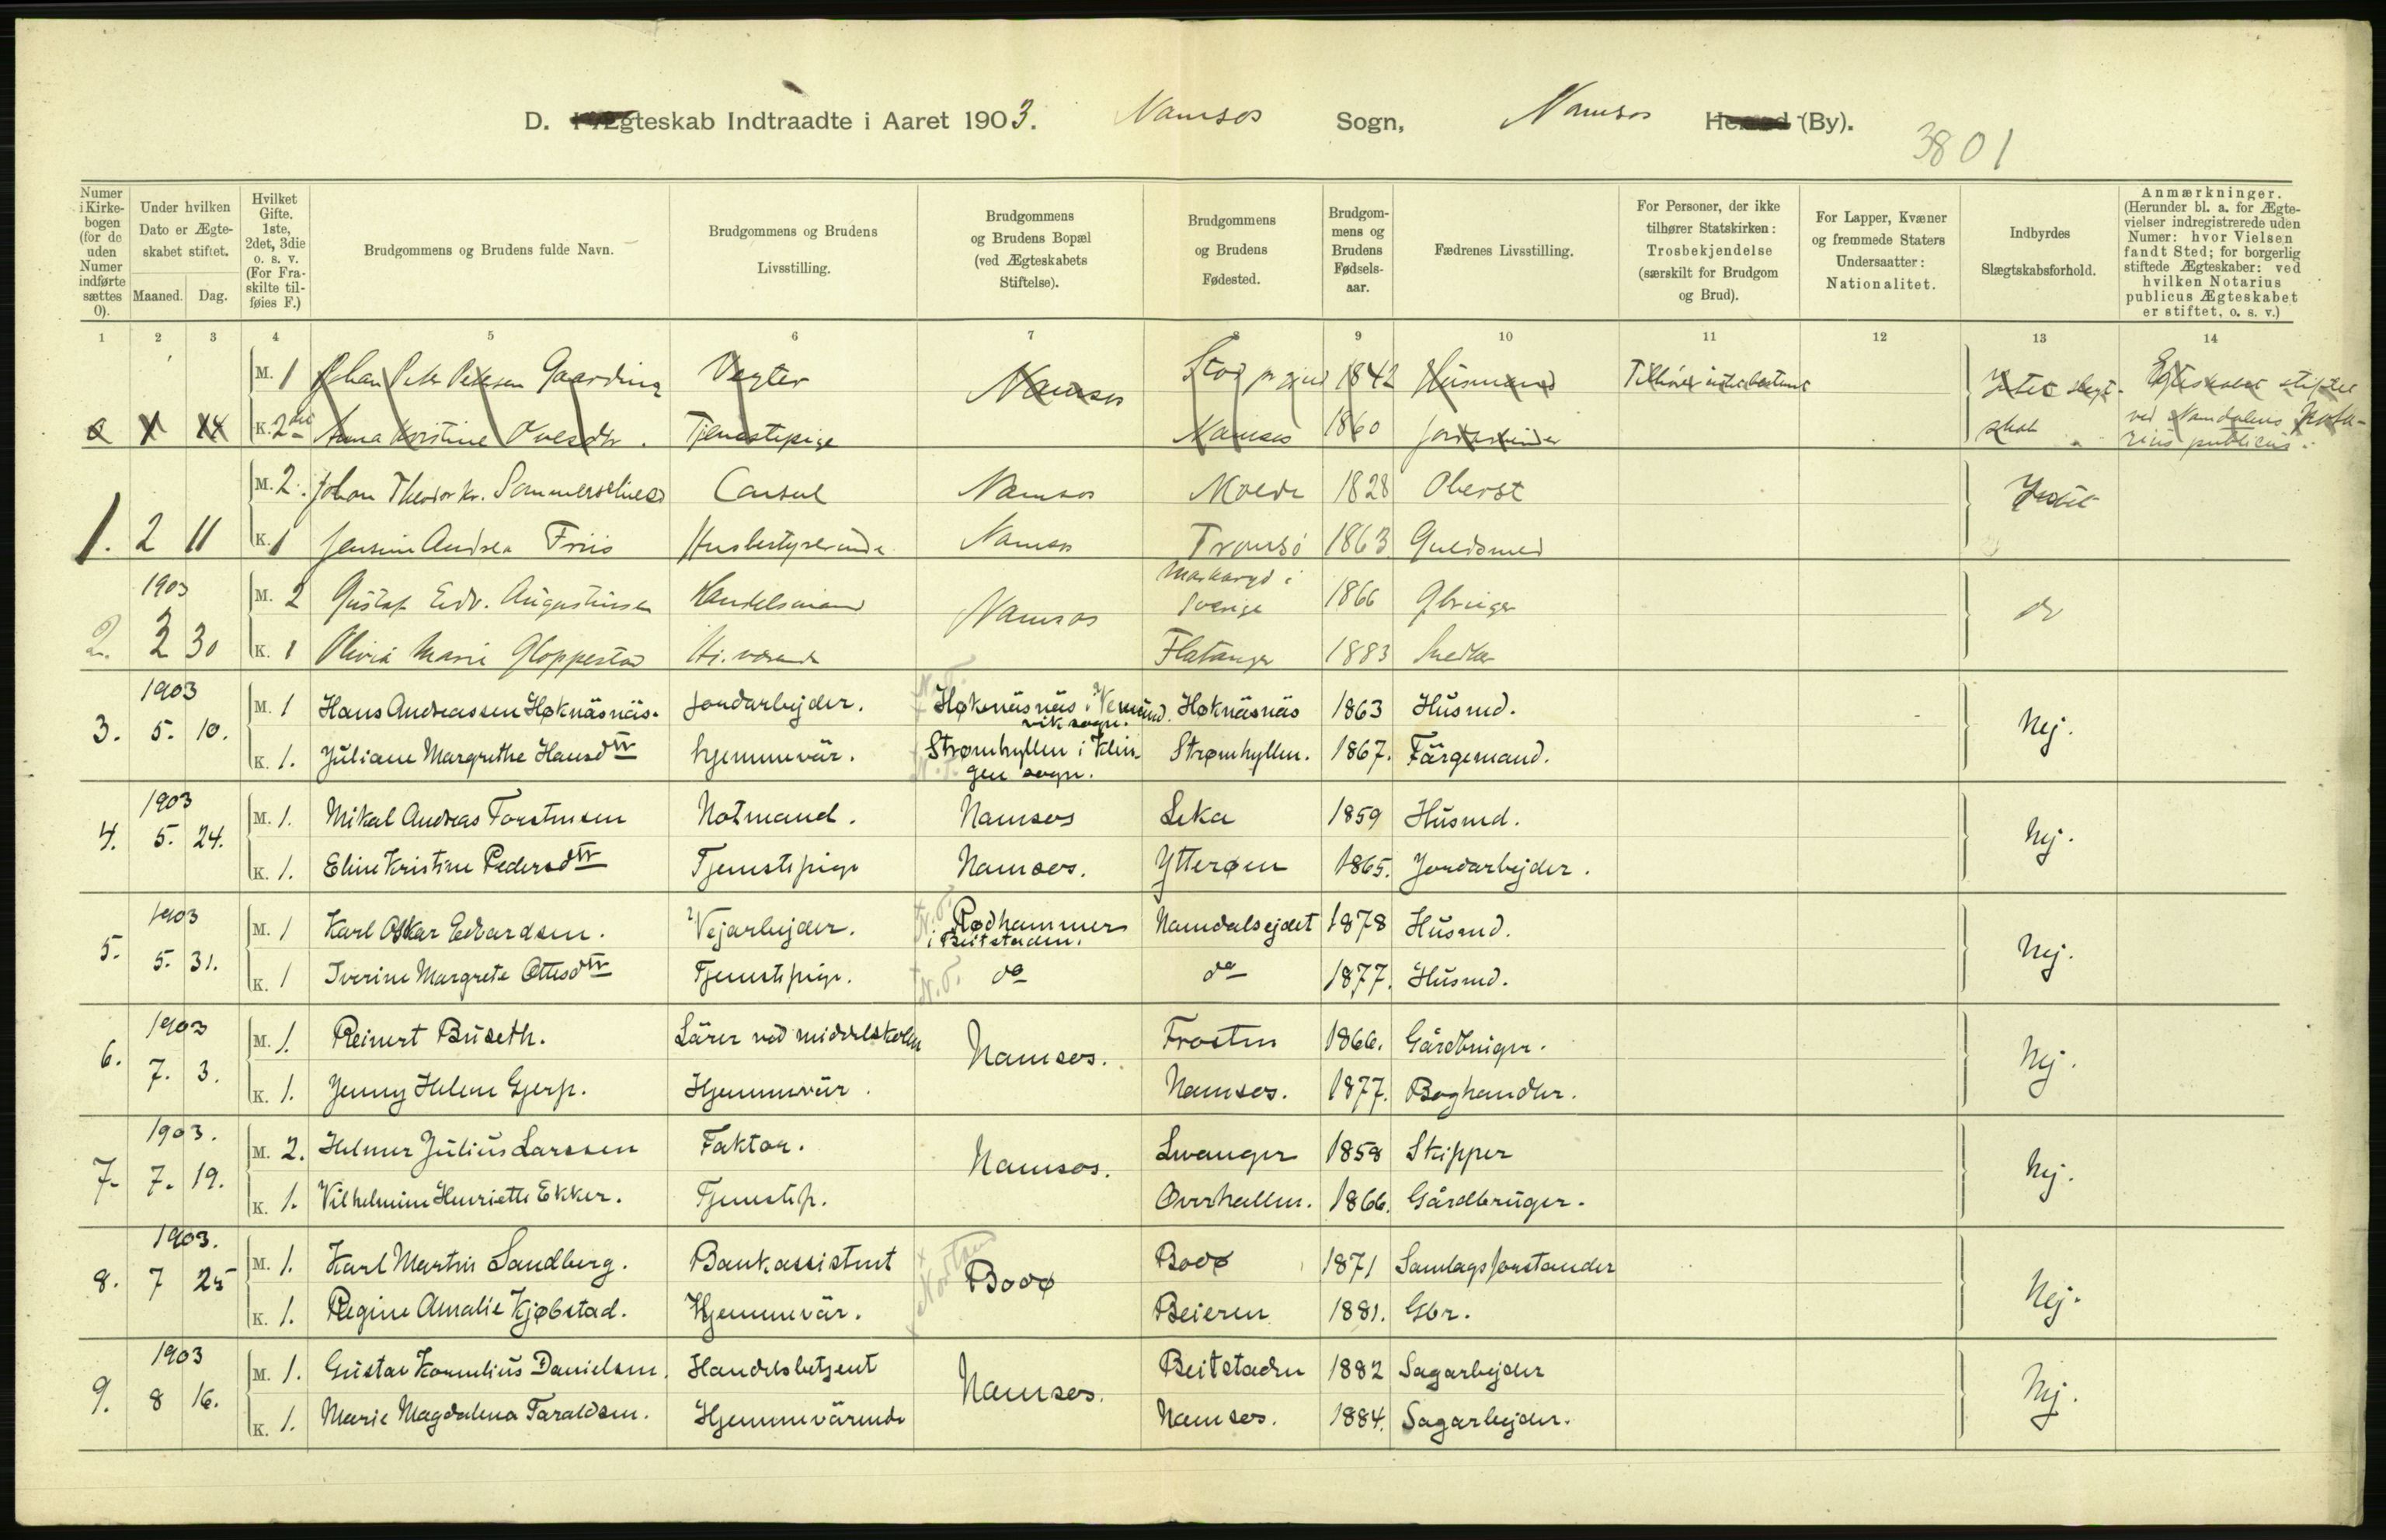 D. I Ægteskab Indtraadte i Aaret 1903. Namsos Sogn, Namsos Herred (By).
3801
Numer i Kirkebogen (for de uden Numer indførte sættes 0).
Under hvilken Dato er Ægteskabet stiftet.
Maaned. Dag.
Hvilket Gifte. 1ste, 2det, 3die o. s. v. (For Fraskilte tilføies F.)
Brudgommens og Brudens fulde Navn.
Brudgommens og Brudens Livsstilling.
Brudgommens og Brudens Bopæl (ved Ægteskabets Stiftelse).
Brudgommens og Brudens Fødested.
Brudgommens og Brudens Fødselsaar.
Fædrenes Livsstilling.
For Personer, der ikke tilhører Statskirken: Trosbekjendelse (særskilt for Brudgom og Brud).
For Lapper, Kvæner og fremmede Staters Undersaatter: Nationalitet.
Indbyrdes Slægtskabsforhold.
Anmærkninger. (Herunder bl. a. for Ægtevielser indregistrerede uden Numer: hvor Vielsen fandt Sted; for borgerlig stiftede Ægteskaber: ved hvilken Notarius publicus Ægteskabet er stiftet, o. s. v.)
1 2 3 4 5 6 7 8 9 10 11 12 13 14
M. 1 Johan Peter Petersen Vegter Namsos Stod 1842 Husmand Intet slægt- Egteskabet stiftet
K. 2 Anna Kristine Tjenestepige Namsos 1860 skab ved Namdalens Nota-
rius publicus.
M. 2. Johan Theodor Kr. Sommerschield Consul Namsos Molde 1828 Oberst Intet
1. 2 11 K. 1 Jensine Andrea Friis Husbestyrerinde Namsos Tromsø 1863 Guldsmed
1903 M. 2 Gustaf Edv. Augustinsen Handelsmand Namsos Markaryd i Sverige 1866 Gbruger do
2. 3 30 K. 1 Olivia Marie Gloppestad Hj. værende Flatanger 1883 Snedker
1903 M. 1 Hans Andreassen Høknäsnäs. Jordarbejder. Høknäsnäs i Vemund vik sogn. Høknäsnäs 1863 Husmd. Nej.
3. 5. 10. K. 1. Juliane Margrethe Hansdtr hjemmevär. Strømhyllen i Klin- gen sogn. Strømhyllen. 1867. Färgemand.
1903 M. 1. Mikal Andreas Torstensen Notmand. Namsos Leka 1859 Husmd. Nej.
4. 5. 24. K. 1. Eline Kristine Pedersdtr Tjenestepige Namsos. Ytterøen 1865. Jordarbejder.
1903 M. 1 Karl Oskar Edvardsen. Vejarbejder. N.T. Rødhammer i Beitstaden. Namdalsejdet 1878 Husmd. Nej.
5. 5. 31. K. 1 Iverine Margrete Ottesdtr Tjenestepige. N.T. do do 1877. Husmd.
1903 M. 1. Reinert Buseth. Lärer ved middelskolen Namsos. Frosten 1866. Gårdbruger. Nej.
6. 7. 3. K. 1. Jenny Helene Gjerp. Hjemmevär. Namsos. 1877. Boghandler.
1903. M. 2. Helmer Julius Larssen Faktor. Namsos. Levanger 1858 Skipper Nej.
7. 7. 19. K. 1. Vilhelmine Henriette Ekker. Tjenestep. Overhallen. 1866. Gårdbruger.
1903. M. 1. Karl Martin Sandberg. Bankassistent Bodø Bodø 1871 Samlagsforstander Nej.
8. 7 25 K. 1. Regine Amalie Kjøbstad. Hjemmevär. Beieren 1881. Gbr.
1903 M. 1. Gustav Kornelius Danielsen. Handelsbetjent Namsos. Beitstaden 1882 Sagarbejder Nej.
9. 8 16. K. 1. Marie Magdalena Taraldsen. Hjemmevärende Namsos. 1884. Sagarbejder.